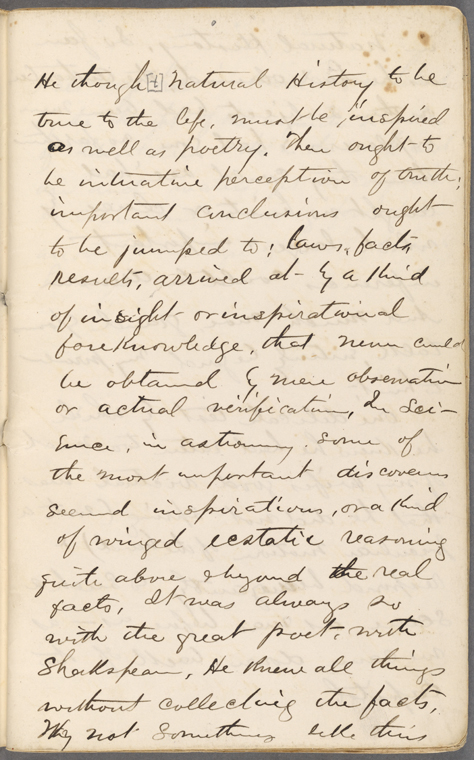 He though[t] Natural History to be
true to the life, must be inspired
as well as poetry. There ought to
be intuative perception of truth;
important conclusions ought
to be jumped to; laws, facts,
results, arrived at by a kind
of insight or inspirational
foreknowledge, that never could
be obtained by mere observation
or actual verification, In Sci-
ence, in astronomy some of
the most important discoveries
seemed inspirations, or a kind
of winged ecstatic reasoning
quite above & beyond the real
facts, It was always so
with the great poet, with
Shakspeare, He knew all things
without collecting the facts,
Why not something like this